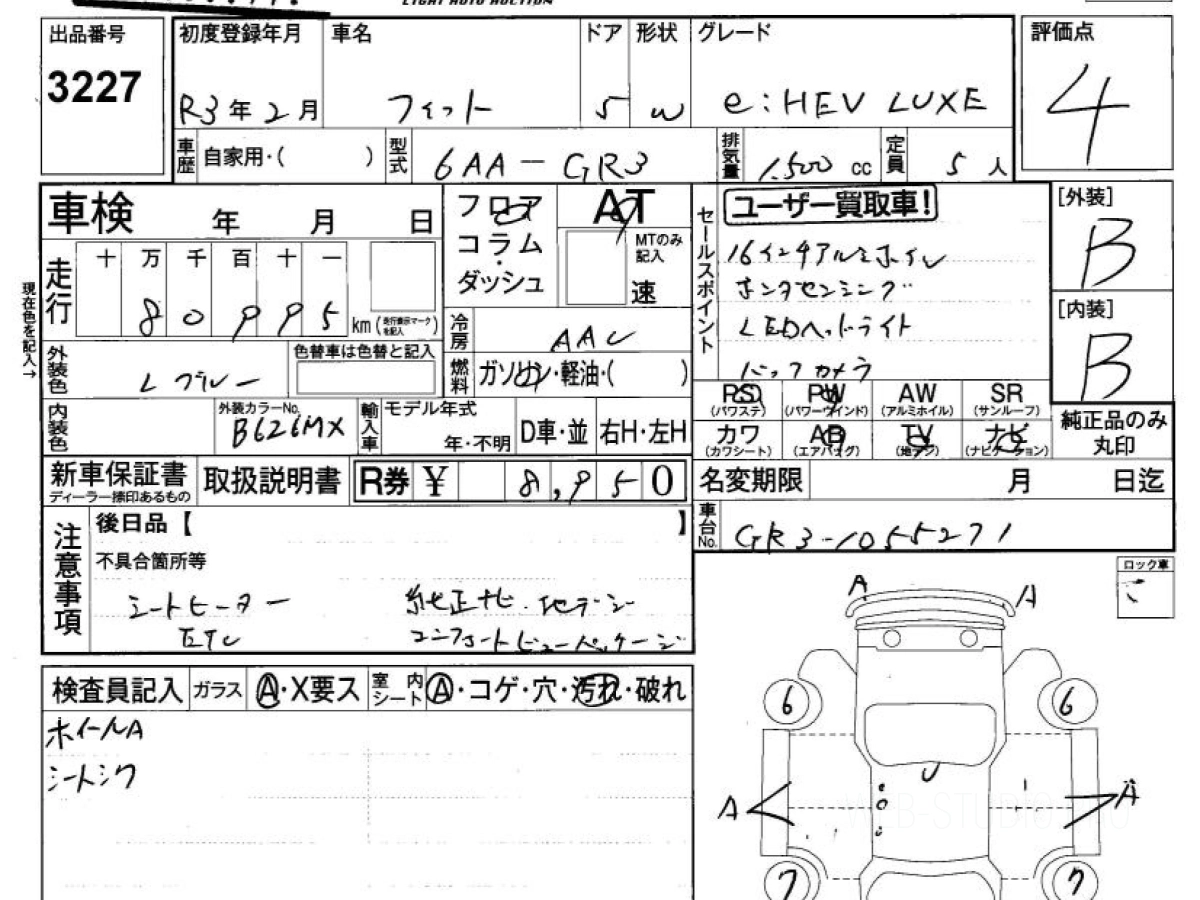 LIGHT AUTO AUCTION
出品番号 初度登録年月 車名 ドア 形状 グレード 評価点
3227 R3年2月 フィット 5 W e:HEV LUXE 4
車歴 自家用・( ) 型式 6AA-GR3 排気量 1,500cc 定員 5人
車検 年 月 日 フロア AT セールスポイント ユーザー買取車! [外装]
コラム・ダッシュ MTのみ記入 速 16インチアルミホイル B
走行 十 万 千 百 十 一 ホンダセンシング
現在色を記入→ 8 0 9 9 5 km(走行表示マークを記入) 冷房 AAC LEDヘッドライト [内装]
外装色 Lブルー 色替車は色替と記入 燃料 ガソリン・軽油・( ) バックカメラ B
PS(パワステ) PW(パワーウインド) AW(アルミホイル) SR(サンルーフ) 純正品のみ丸印
内装色 外装カラーNo. B626MX 輸入車 モデル年式 年・不明 D車・並 右H・左H カワ(カワシート) AB(エアバッグ) TV(地デジ) ナビ(ナビゲーション)
新車保証書 ディーラー捺印あるもの 取扱説明書 R券 ¥ 8,950 名変期限 月 日迄
車台No. GR3-1055271
注意事項 後日品【 】
不具合箇所等 ロック車
シートヒーター 純正ナビ.地デジ
ETC コンフォートビューパッケージ
A A
検査員記入 ガラス A・X要ス 室内シート A・コゲ・穴・汚れ・破れ
ホイールA 6 6
シートシワ
A A
WEB-STUDIO.PRO
7 7